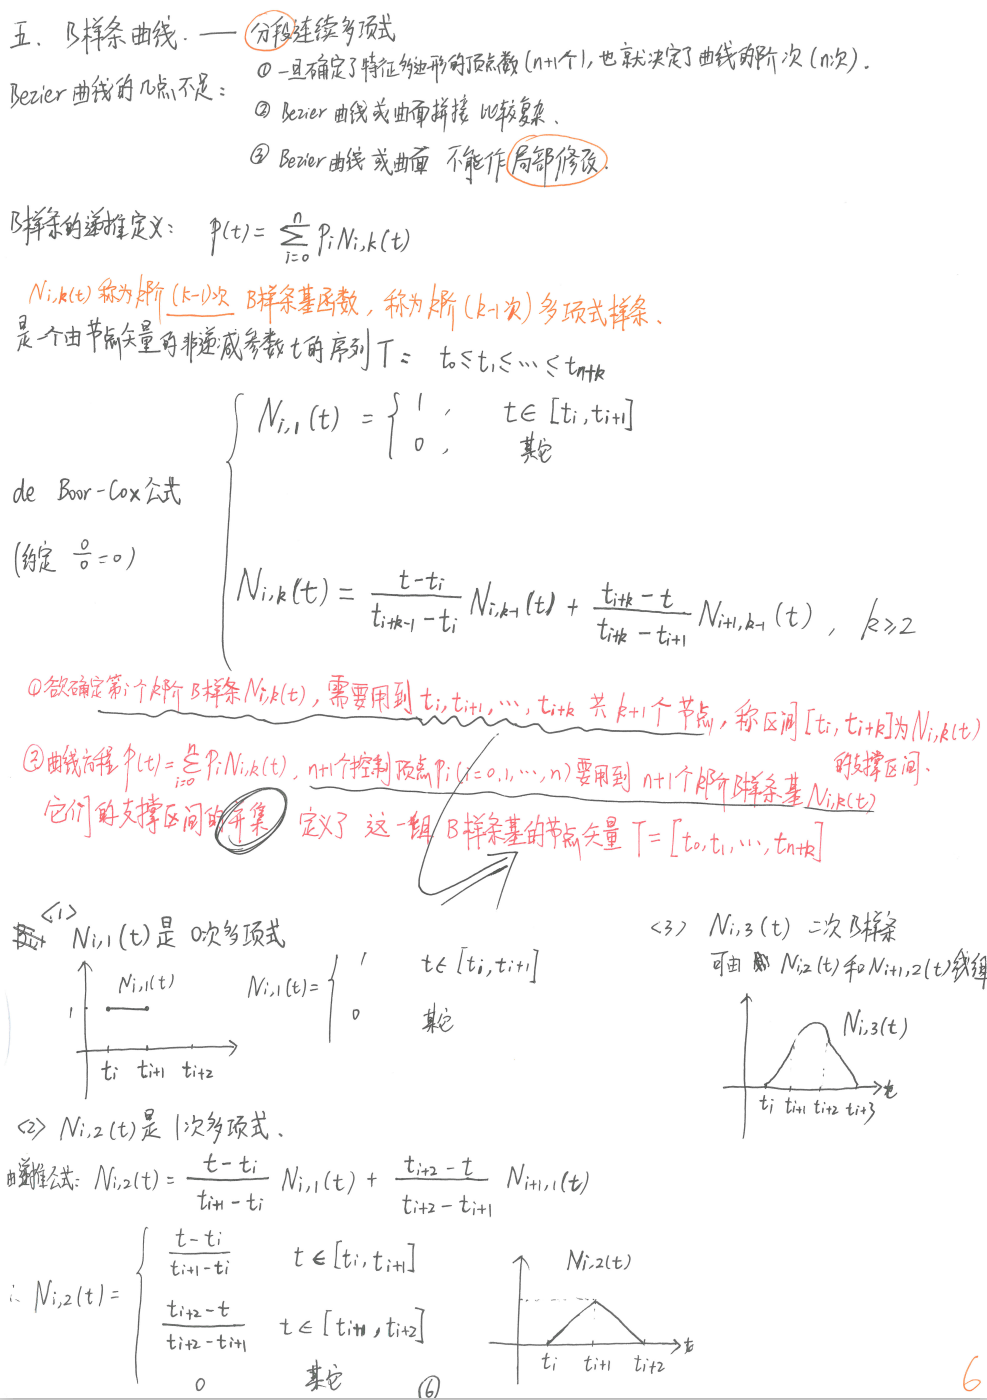 五、B样条曲线.——分段连续多项式
Bezier曲线的几点不足:
① 一旦确定了特征多边形的顶点数(n+1个),也就决定了曲线的阶次(n次).
② Bezier曲线或曲面拼接比较复杂.
③ Bezier曲线或曲面 不能作局部修改.
B样条的递推定义: P(t)=∑_{i=0}^{n} PiNi,k(t)
Ni,k(t)称为k阶(k-1)次 B样条基函数,称为k阶(k-1次)多项式样条.
是一个由节点矢量的非递减参数t的序列T= t0≤t1≤…≤tn+k
Ni,1(t) = { 1, t∈[ti,ti+1]
0, 其它
de Boor-Cox公式
(约定 0/0=0)
Ni,k(t)= (t-ti)/(ti+k-1-ti) Ni,k-1(t) + (ti+k-t)/(ti+k-ti+1) Ni+1,k-1(t), k≥2
①欲确定第i个k阶B样条Ni,k(t),需要用到ti,ti+1,…,ti+k 共k+1个节点,称区间[ti,ti+k]为Ni,k(t)
的支撑区间.
②曲线方程P(t)=∑_{i=0}^{n} PiNi,k(t),n+1个控制顶点Pi(i=0,1,…,n)要用到n+1个k阶B样条基Ni,k(t)
它们的支撑区间的并集 定义了这一组B样条基的节点矢量T=[t0,t1,…,tn+k]
<1> Ni,1(t)是 0次多项式
Ni,1(t)
1
ti ti+1 ti+2
Ni,1(t)= { 1 t∈[ti,ti+1]
0 其它
<3> Ni,3(t) 二次B样条
可由 Ni,2(t)和Ni+1,2(t)线组
Ni,3(t)
ti ti+1 ti+2 ti+3 t
<2> Ni,2(t)是1次多项式.
由递推公式: Ni,2(t)= (t-ti)/(ti+1-ti) Ni,1(t) + (ti+2-t)/(ti+2-ti+1) Ni+1,1(t)
∴ Ni,2(t)= { (t-ti)/(ti+1-ti) t∈[ti,ti+1]
(ti+2-t)/(ti+2-ti+1) t∈[ti+1,ti+2]
0 其它
Ni,2(t)
ti ti+1 ti+2 t
⑥
6